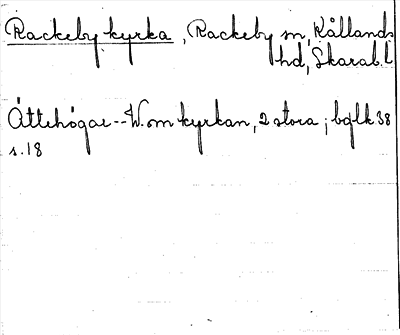 Rackeby kyrka, Rackeby sn, Kållands
hd, Skarab.l
Ättehögar -- W. om kyrkan, 2 stora; bqlk 38
s. 18